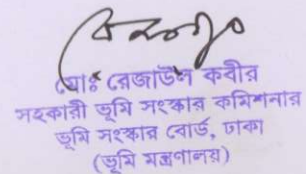 মোঃ রেজাউল কবীর
সহকারী ভূমি সংস্কার কমিশনার
ভূমি সংস্কার বোর্ড, ঢাকা
(ভূমি মন্ত্রণালয়)